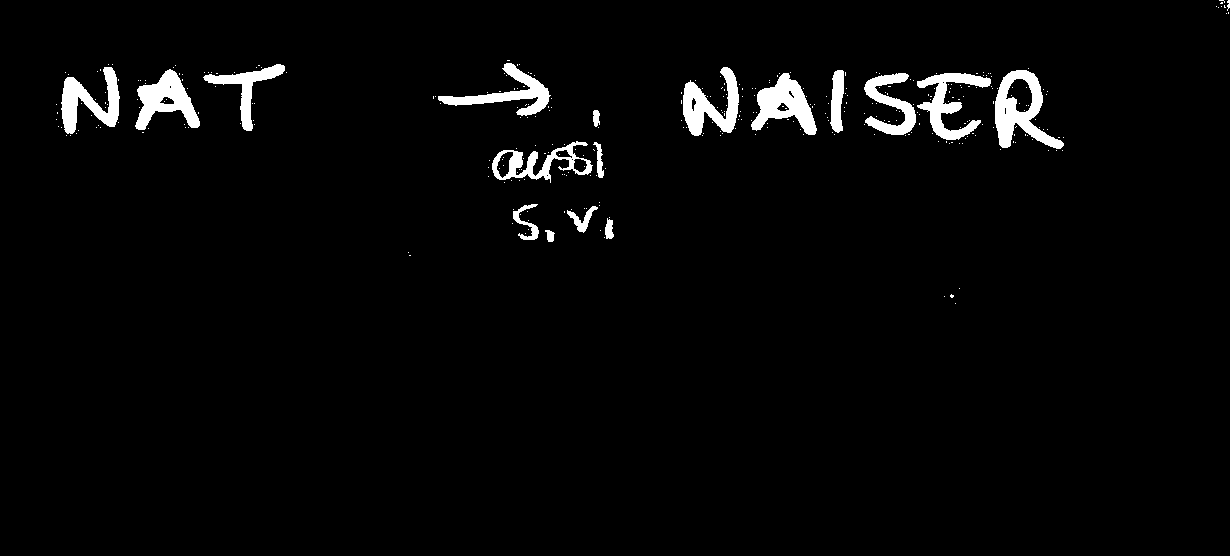 NAT → NAISER
aussi
s.v.